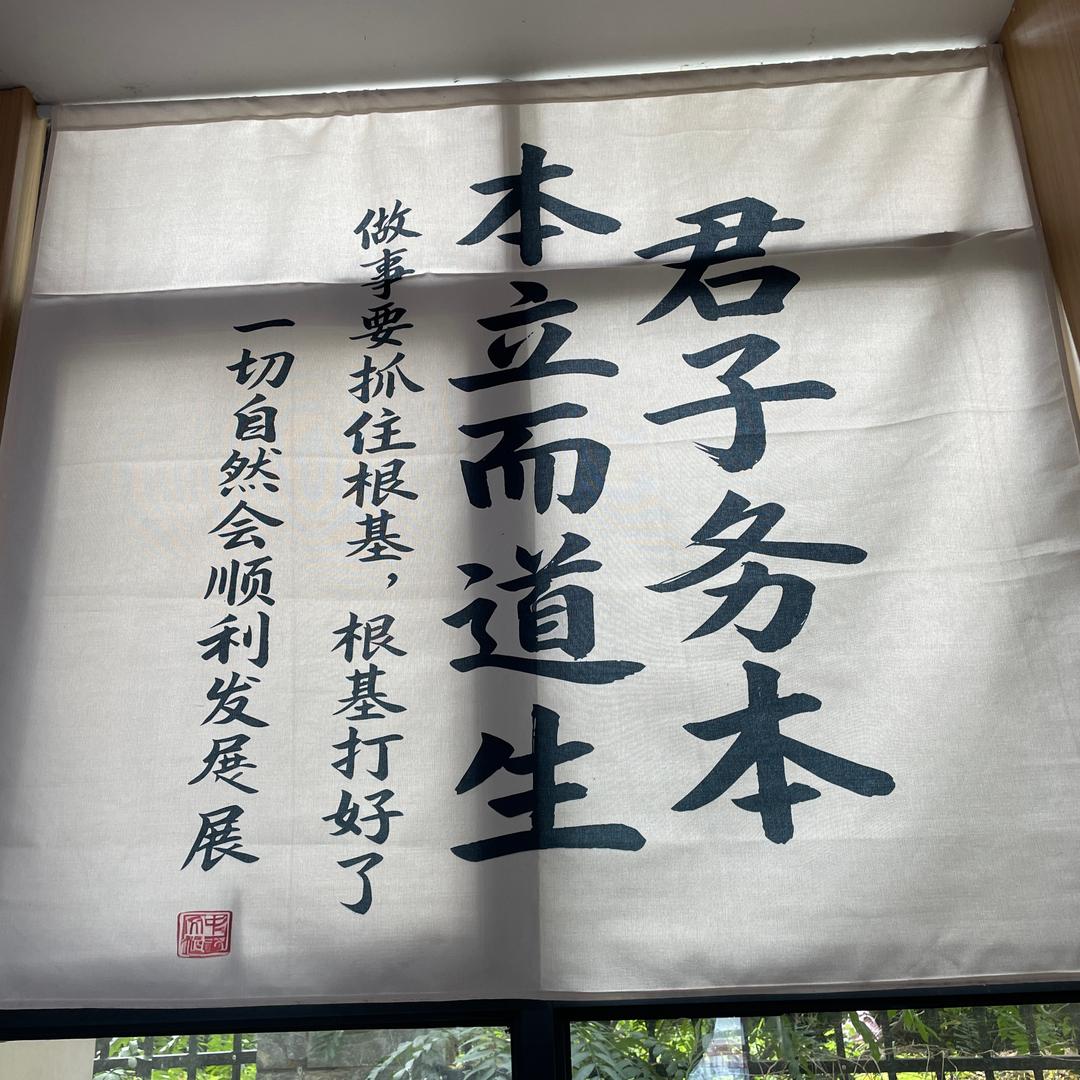 君子务本
本立而道生
做事要抓住根基，根基打好了
一切自然会顺利发展展